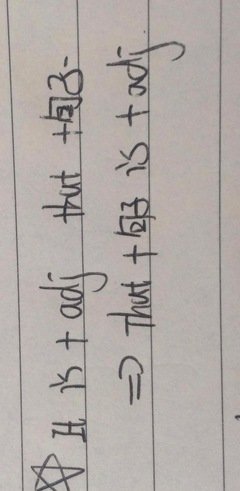 ☆ It is + adj that + 句子.
⇒ That + 句子 is + adj